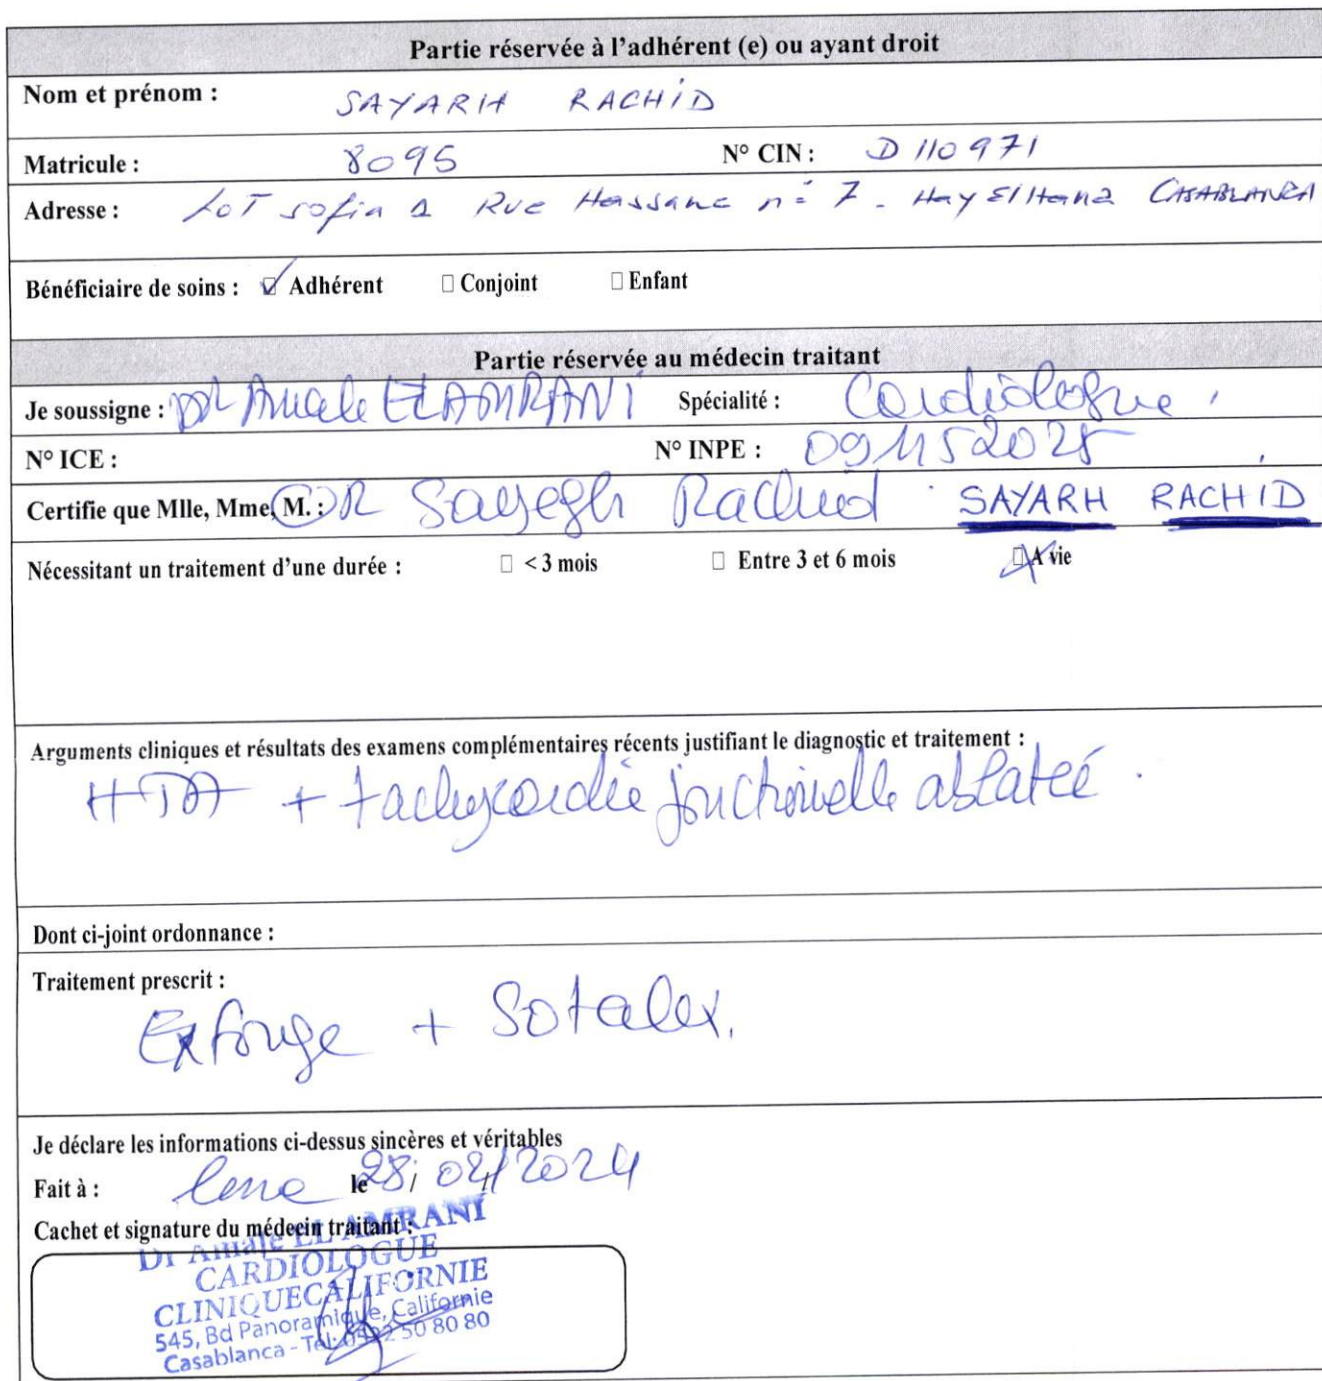 Partie réservée à l'adhérent (e) ou ayant droit
Nom et prénom : SAYARH RACHID
Matricule : 8095 N° CIN : D 110971
Adresse : LOT sofia 1 Rue Hassane n° 7 - Hay El Hana CASABLANCA
Bénéficiaire de soins : ☑ Adhérent ☐ Conjoint ☐ Enfant
Partie réservée au médecin traitant
Je soussigne : DR Amale ELAMRANI Spécialité : Cardiologue
N° ICE : N° INPE : 091152025
Certifie que Mlle, Mme, M. : Sayegh Rachid SAYARH RACHID
Nécessitant un traitement d'une durée : ☐ < 3 mois ☐ Entre 3 et 6 mois ☒ A vie
Arguments cliniques et résultats des examens complémentaires récents justifiant le diagnostic et traitement :
HTA + tachycardie jonctionnelle ablatée.
Dont ci-joint ordonnance :
Traitement prescrit :
Exforge + Sotalex.
Je déclare les informations ci-dessus sincères et véritables
Fait à : le 28/02/2024
Cachet et signature du médecin traitant :
Dr Amale EL AMRANI
CARDIOLOGUE
CLINIQUE CALIFORNIE
545, Bd Panoramique, Californie
Casablanca - Tél: 0522 50 80 80